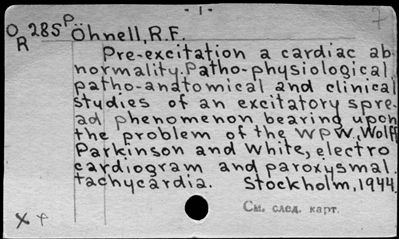 - 1 -
O 285 P.. Ohnell, R.F.
R
Pre-excitation a cardiac ab
normality. Patho-physiological,
patho-anatomical and clinical
studies of an excitatory spre-
ad phenomenon bearing upon
the problem of the WPW, Wolff
Parkinson and White, electro
cardiogram and paroxysmal
tachycardia. Stockholm, 1944
См. след. карт.